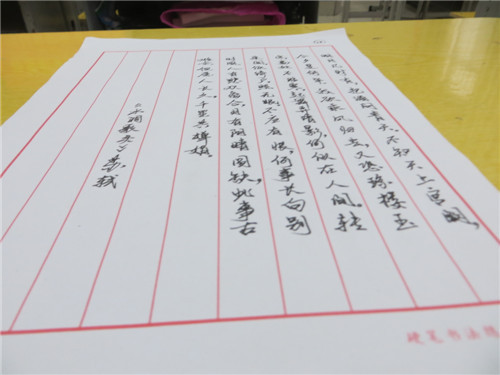 明月几时有，把酒问青天。不知天上宫阙，
今夕是何年。我欲乘风归去，又恐琼楼玉
宇高处不胜寒，起舞弄清影，何似在人间。转
朱阁低绮户照无眠。不应有恨，何事长向别
时圆人有悲欢离合月有阴晴圆缺，此事古
难全。但愿人长久，千里共婵娟。
《水调歌头》苏轼
硬笔书法练